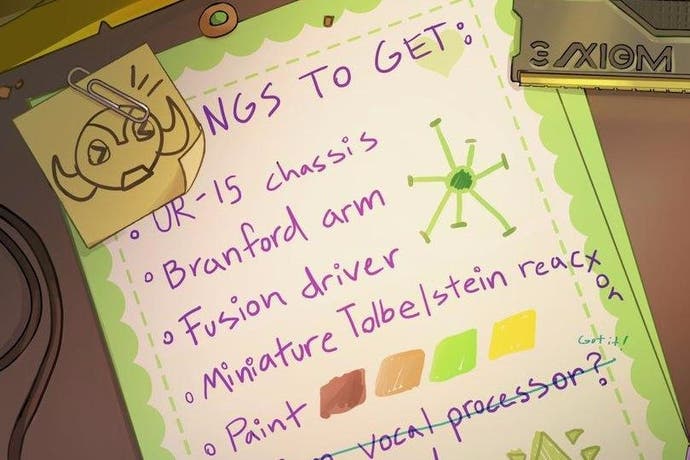 NGS TO GET:
AXIOM
UR-15 chassis
Branford arm
Fusion driver
Miniature Tolbelstein reactor
Got it!
Paint
vocal processor?